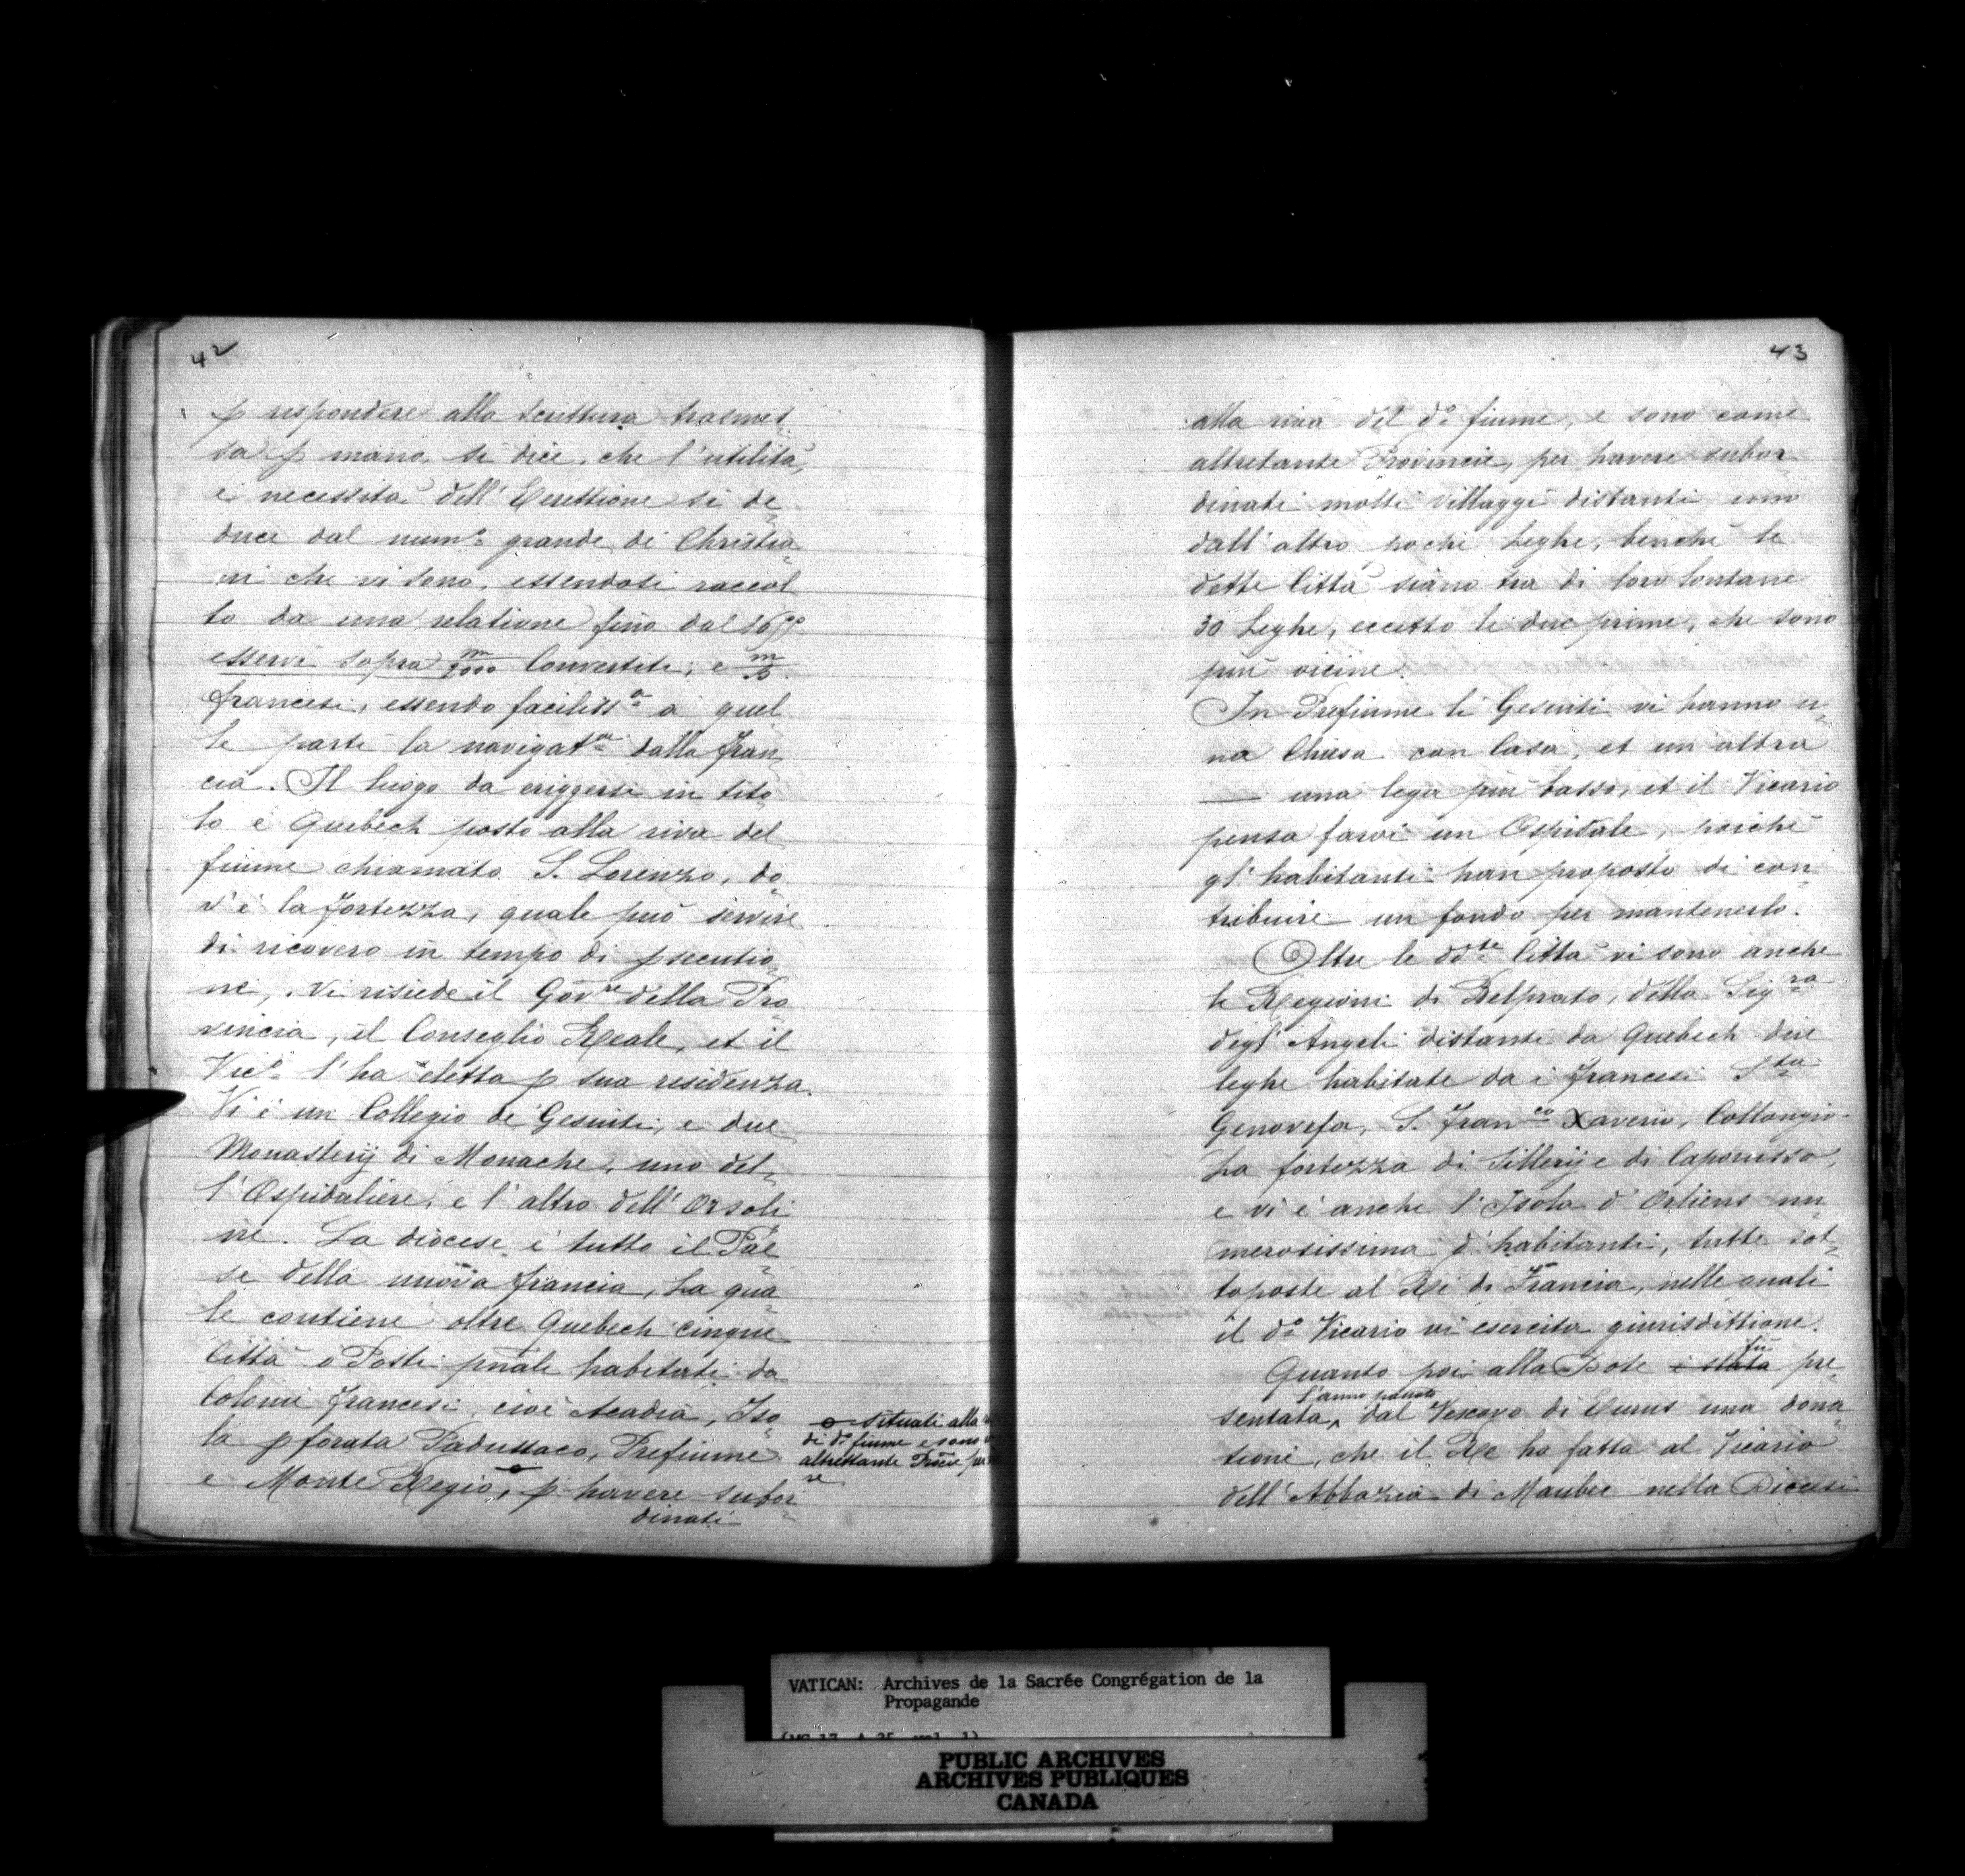 42
p respondere alla scrittura trasmes
sa p mano, si dice, che l'utilità,
e necessità dell' Erettione si de
duce dal num.o grande di Christia
ni che vi sono, essendosi raccol
to da una relatione fino dal
esservi sopra m/2000 Convertiti, e
francesi, essendo faciliss.a a quel
le parti la navigat.ne dalla Fran
cia. Il luogo da eriggersi in tito
lo è Quebech posto alla riva del
fiume chiamato S. Lorenzo, do
v'è la fortezza, quale può servire
di ricovero in tempo di psecutio
ne, vi risiede il Gov.re della Pro
vincia, il Conseglio Reale, et il
Vic.o l'ha eletta p sua residenza.
Vi è un Collegio de Gesuiti, e due
Monasterij di Monache, uno del
l'Ospidaliere, e l'altro dell' Orsoli
ne. La diocese è tutto il Pae
se della nuova francia, La qua
le contiene oltre Quebech cinque
Città o Posti pnali habitati da
Colonie francesi, cioè Acadia, Iso
la pforata Padussaco, Prefiume
e Monte Regio, p havere subor
dinati
o situati alla
di d.o fiume e sono
altrettante Prôcie per
re
43
alla riva del d.o fiume, e sono come
altretante Provincie, per havere subor
dinati molti villaggi distanti uno
dall'altro poche Leghe, benche le
dette Città siano tra di loro lontane
30 Leghe, eccetto le due prime, che sono
più vicine.
In Prefiume li Gesuiti vi hanno u
na Chiesa con Casa, et un'altra
— una lega più basso, et il Vicario
pensa farvi un Ospidale, poiche
gl' habitanti han proposto di con
tribuire un fondo per mantenerlo.
Oltre le dd.te Città vi sono anche
le Regioni di Belprato, della Sig.ra
degl' Angeli distanti da Quebech due
leghe habitate da i francesi S.ta
Genovefa, S. Fran.co Xaverio, Collangio
La fortezza di Sillerij e di Caporusso,
e vi è anche l'Isola d'Orliens nu
merosissima d'habitanti, tutte sot
toposte al Rè di Francia, nelle quali
il d.o Vicario vi esercita giurisdittione.
Quanto poi alla Dote è stata fù pre
sentata, l'anno passato dal Vescovo di una dona
tione, che il Re ha fatta al Vicario
dell' Abbazia di Maubec nella Diocesi
VATICAN: Archives de la Sacrée Congrégation de la
Propagande
(MG 17, A 25, vol. 1)
PUBLIC ARCHIVES
ARCHIVES PUBLIQUES
CANADA